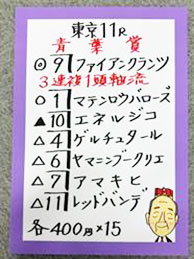 東京11R
青葉賞
◎9 ファイアンクランツ
3連複1頭軸流
○1 マテンロウバローズ
▲10 エネルジコ
△4 ゲルチュタール
△6 ヤマニンブークリエ
△7 アマキヒ
△11 レッドバンデ
各400円×15